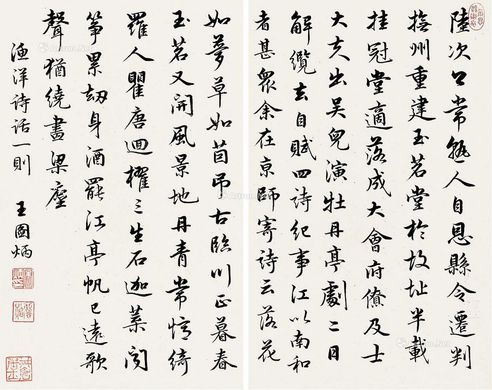 陸次公常熟人自恩縣令遷判
撫州重建玉茗堂於故址半載
挂冠堂適落成大會府僚及士
大夫出吳兒演牡丹亭劇二日
解纜去自賦四詩紀事江以南和
者甚衆余在京師寄詩云落花
如夢草如茵弔古臨川正暮春
玉茗又開風景地丹青常憶綺
羅人瞿唐迴櫂三生石迦葉聞
箏累劫身酒罷江亭帆已遠歌
聲猶繞畫梁塵
漁洋詩話一則
王國炳